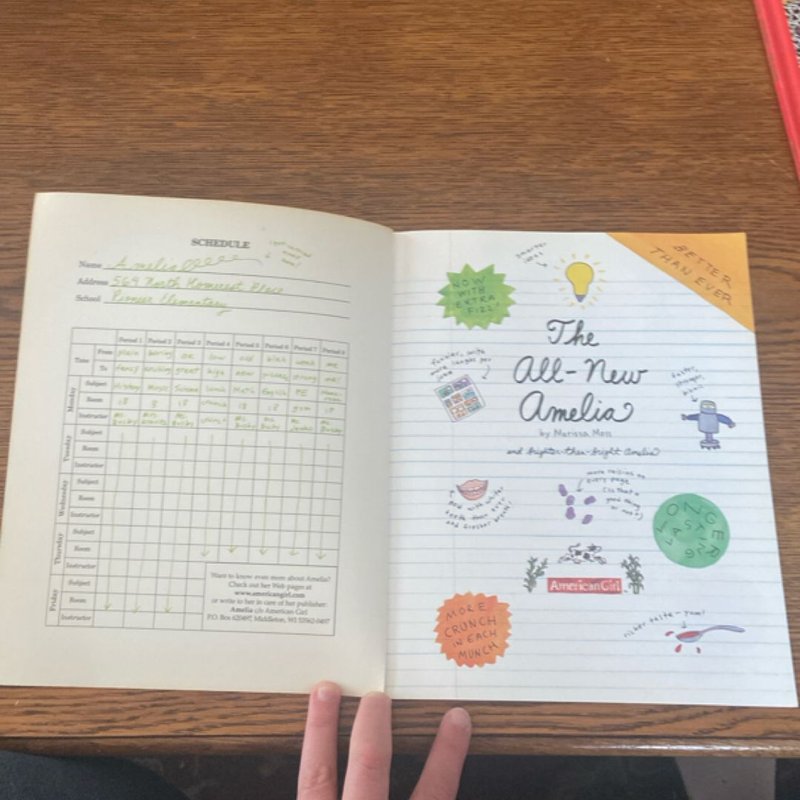 SCHEDULE
Name Amelia
Address 564 North Homerest Place
School Pioneer Elementary
Period 1 Period 2 Period 3 Period 4 Period 5 Period 6 Period 7 Period 8
Time From plain boring OK low old weak me
To fancy exciting great high new strong me!
Monday Subject History Music Science Lunch Math English PE
Room 18 8 18 18 18 gym 18
Instructor
Tuesday Subject
Room
Instructor
Wednesday Subject
Room
Instructor
Thursday Subject
Room
Instructor
Friday Subject
Room
Instructor
Want to know even more about Amelia?
Check out her Web pages at
www.americangirl.com
or write to her in care of her publisher:
Amelia c/o American Girl
P.O. Box 620497, Middleton, WI 53562-0497
BETTER
THAN EVER
smarter
idea!
NOW
WITH
EXTRA
FIZZ!
The
All-New
Amelia
by Marissa Moss
and brighter-than-bright Amelia
funnier, with
more laughs per
joke
faster,
stronger,
more raisins on
every page
(is that a
good thing
or not?)
and with whiter
teeth than ever
and fresher breath!
LONGER
LASTING
American Girl
MORE
CRUNCH
IN EACH
MUNCH
richer taste—yum!